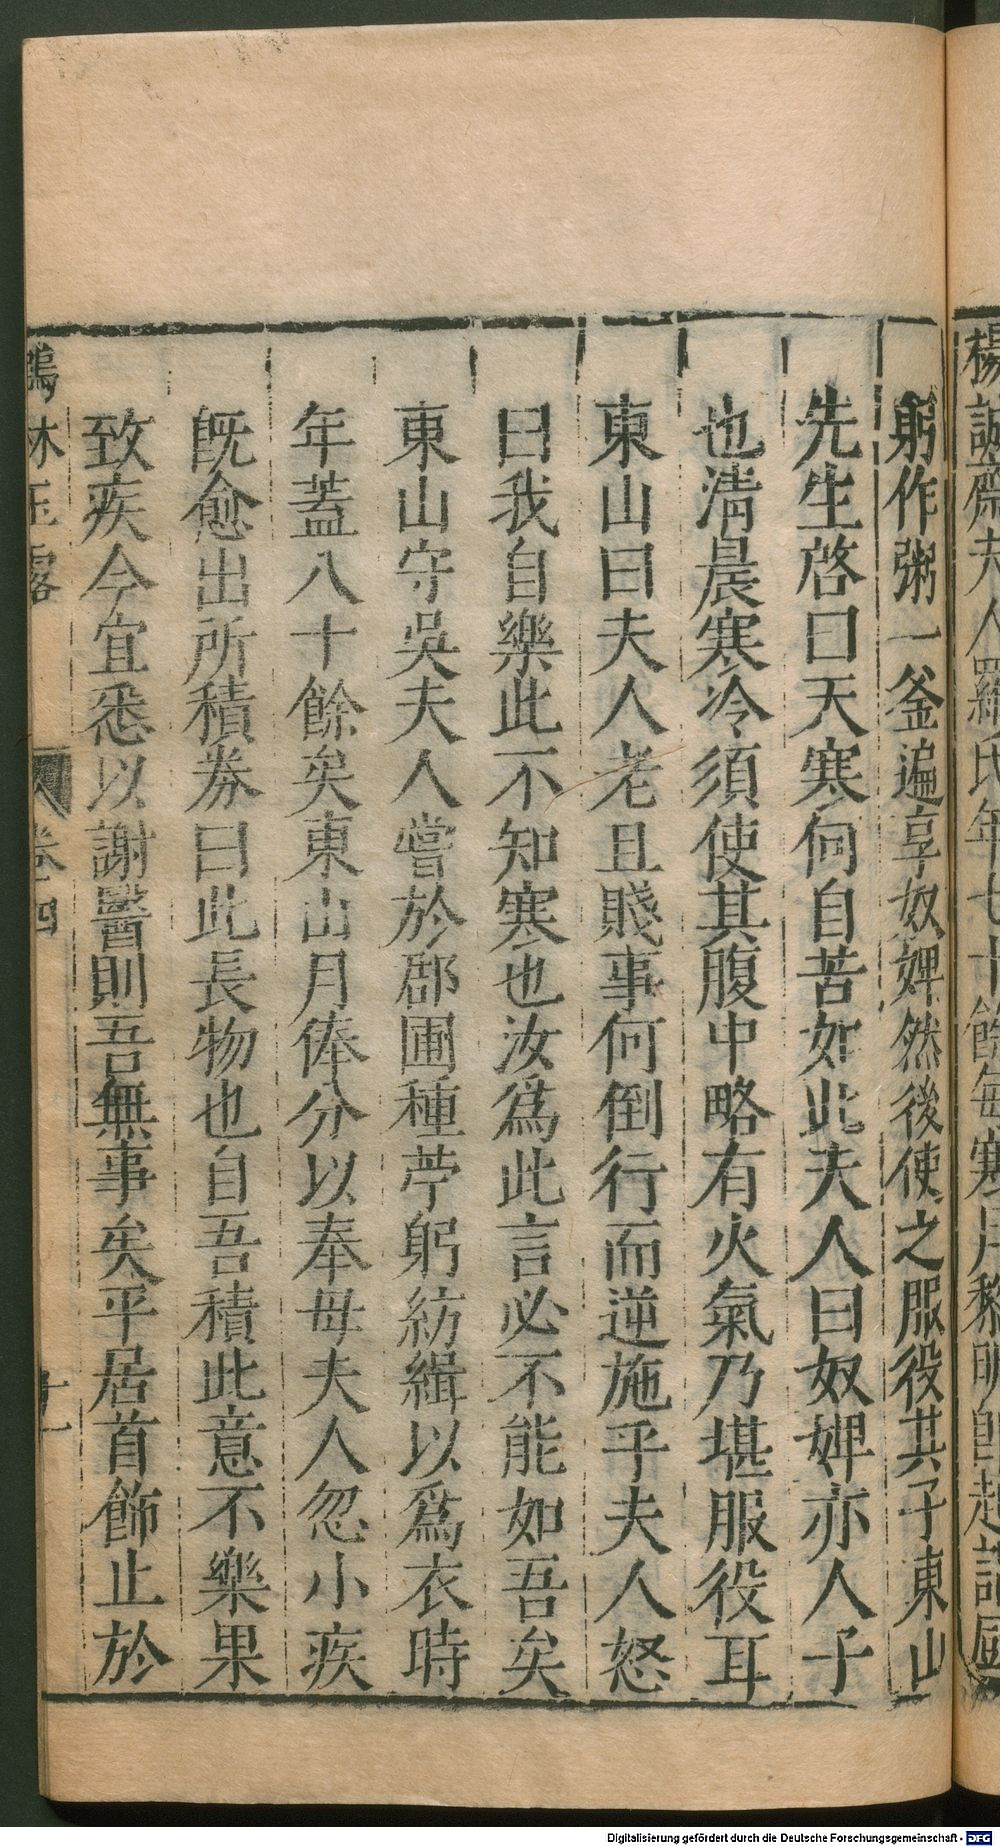 楊誠齋夫人羅氏年七十餘每寒月黎明即起詣厨
躬作粥一釜遍享奴婢然後使之服役其子東山
先生啓曰天寒何自苦如此夫人曰奴婢亦人子
也清晨寒冷須使其腹中略有火氣乃堪服役耳
東山曰夫人老且賤事何倒行而逆施乎夫人怒
曰我自樂此不知寒也汝爲此言必不能如吾矣
東山守吳夫人嘗於郡圃種苧躬紡緝以爲衣時
年蓋八十餘矣東山月俸分以奉母夫人忽小疾
既愈出所積劵曰此長物也自吾積此意不樂果
致疾今宜悉以謝醫則吾無事矣平居首飾止於
鶴林玉露 卷四 十一
Digitalisierung gefördert durch die Deutsche Forschungsgemeinschaft - DFG